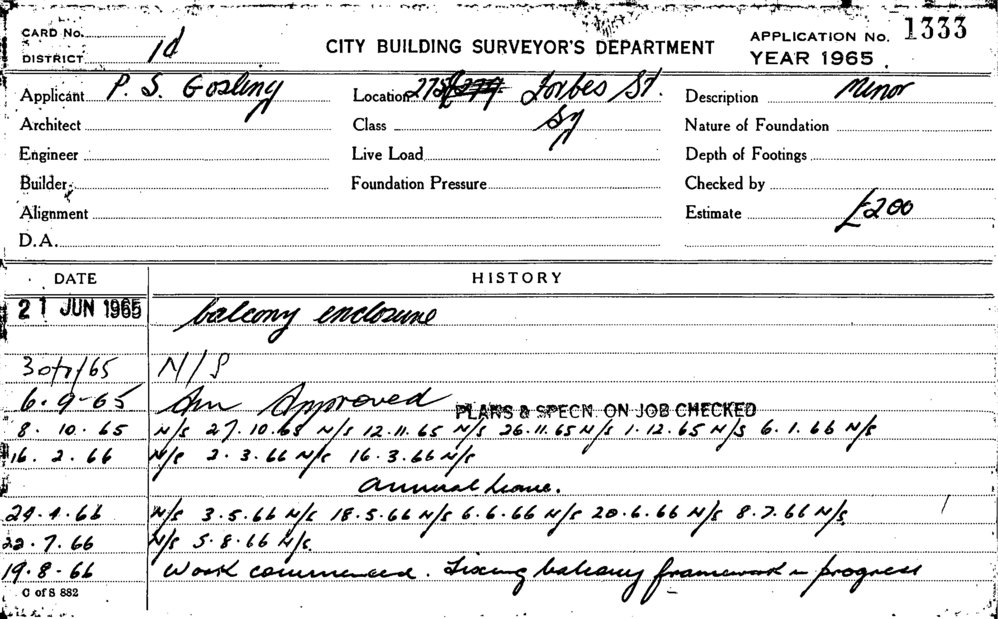 CARD No.
DISTRICT 1d
CITY BUILDING SURVEYOR'S DEPARTMENT
APPLICATION No. 1333
YEAR 1965.
Applicant P. S. Gosling Location 275/277 Forbes St. Description Minor
Architect Class Sy Nature of Foundation
Engineer Live Load Depth of Footings
Builder Foundation Pressure Checked by
Alignment Estimate £200
D.A.
DATE HISTORY
21 JUN 1965 balcony enclosure
30/7/65 N/S
6.9-65 Approved PLANS & SPECN. ON JOB CHECKED
8.10.65 N/s 27.10.65 N/s 12.11.65 N/s 26.11.65 N/s 1.12.65 N/s 6.1.66 N/s
16.2.66 N/s 2.3.66 N/s 16.3.66 N/s
annual leave.
29.4.66 N/s 3.5.66 N/s 18.5.66 N/s 6.6.66 N/s 20.6.66 N/s 8.7.66 N/s
22.7.66 N/s 5.8.66 N/s.
19.8-66 Work commenced. Fixing balcony framework in progress
C of S 882